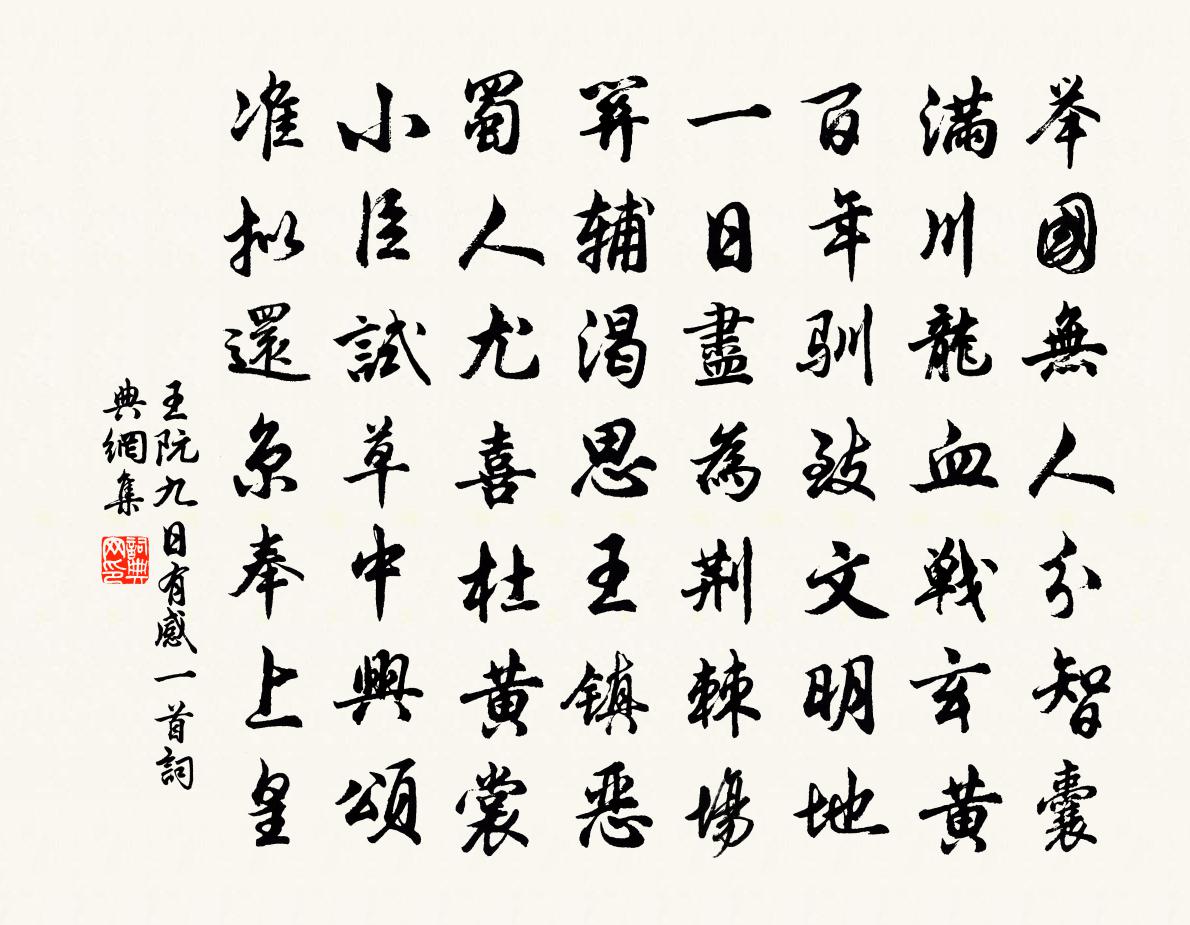 举國無人分智囊
滿川龍血戰玄黄
百年馴致文明地
一日盡為荆棘場
羿辅渴思王镇惡
蜀人尤喜杜黄裳
小臣試草中興頌
准拟還京奉上皇
王阮九日有感一首詞
典網集
詞典
网